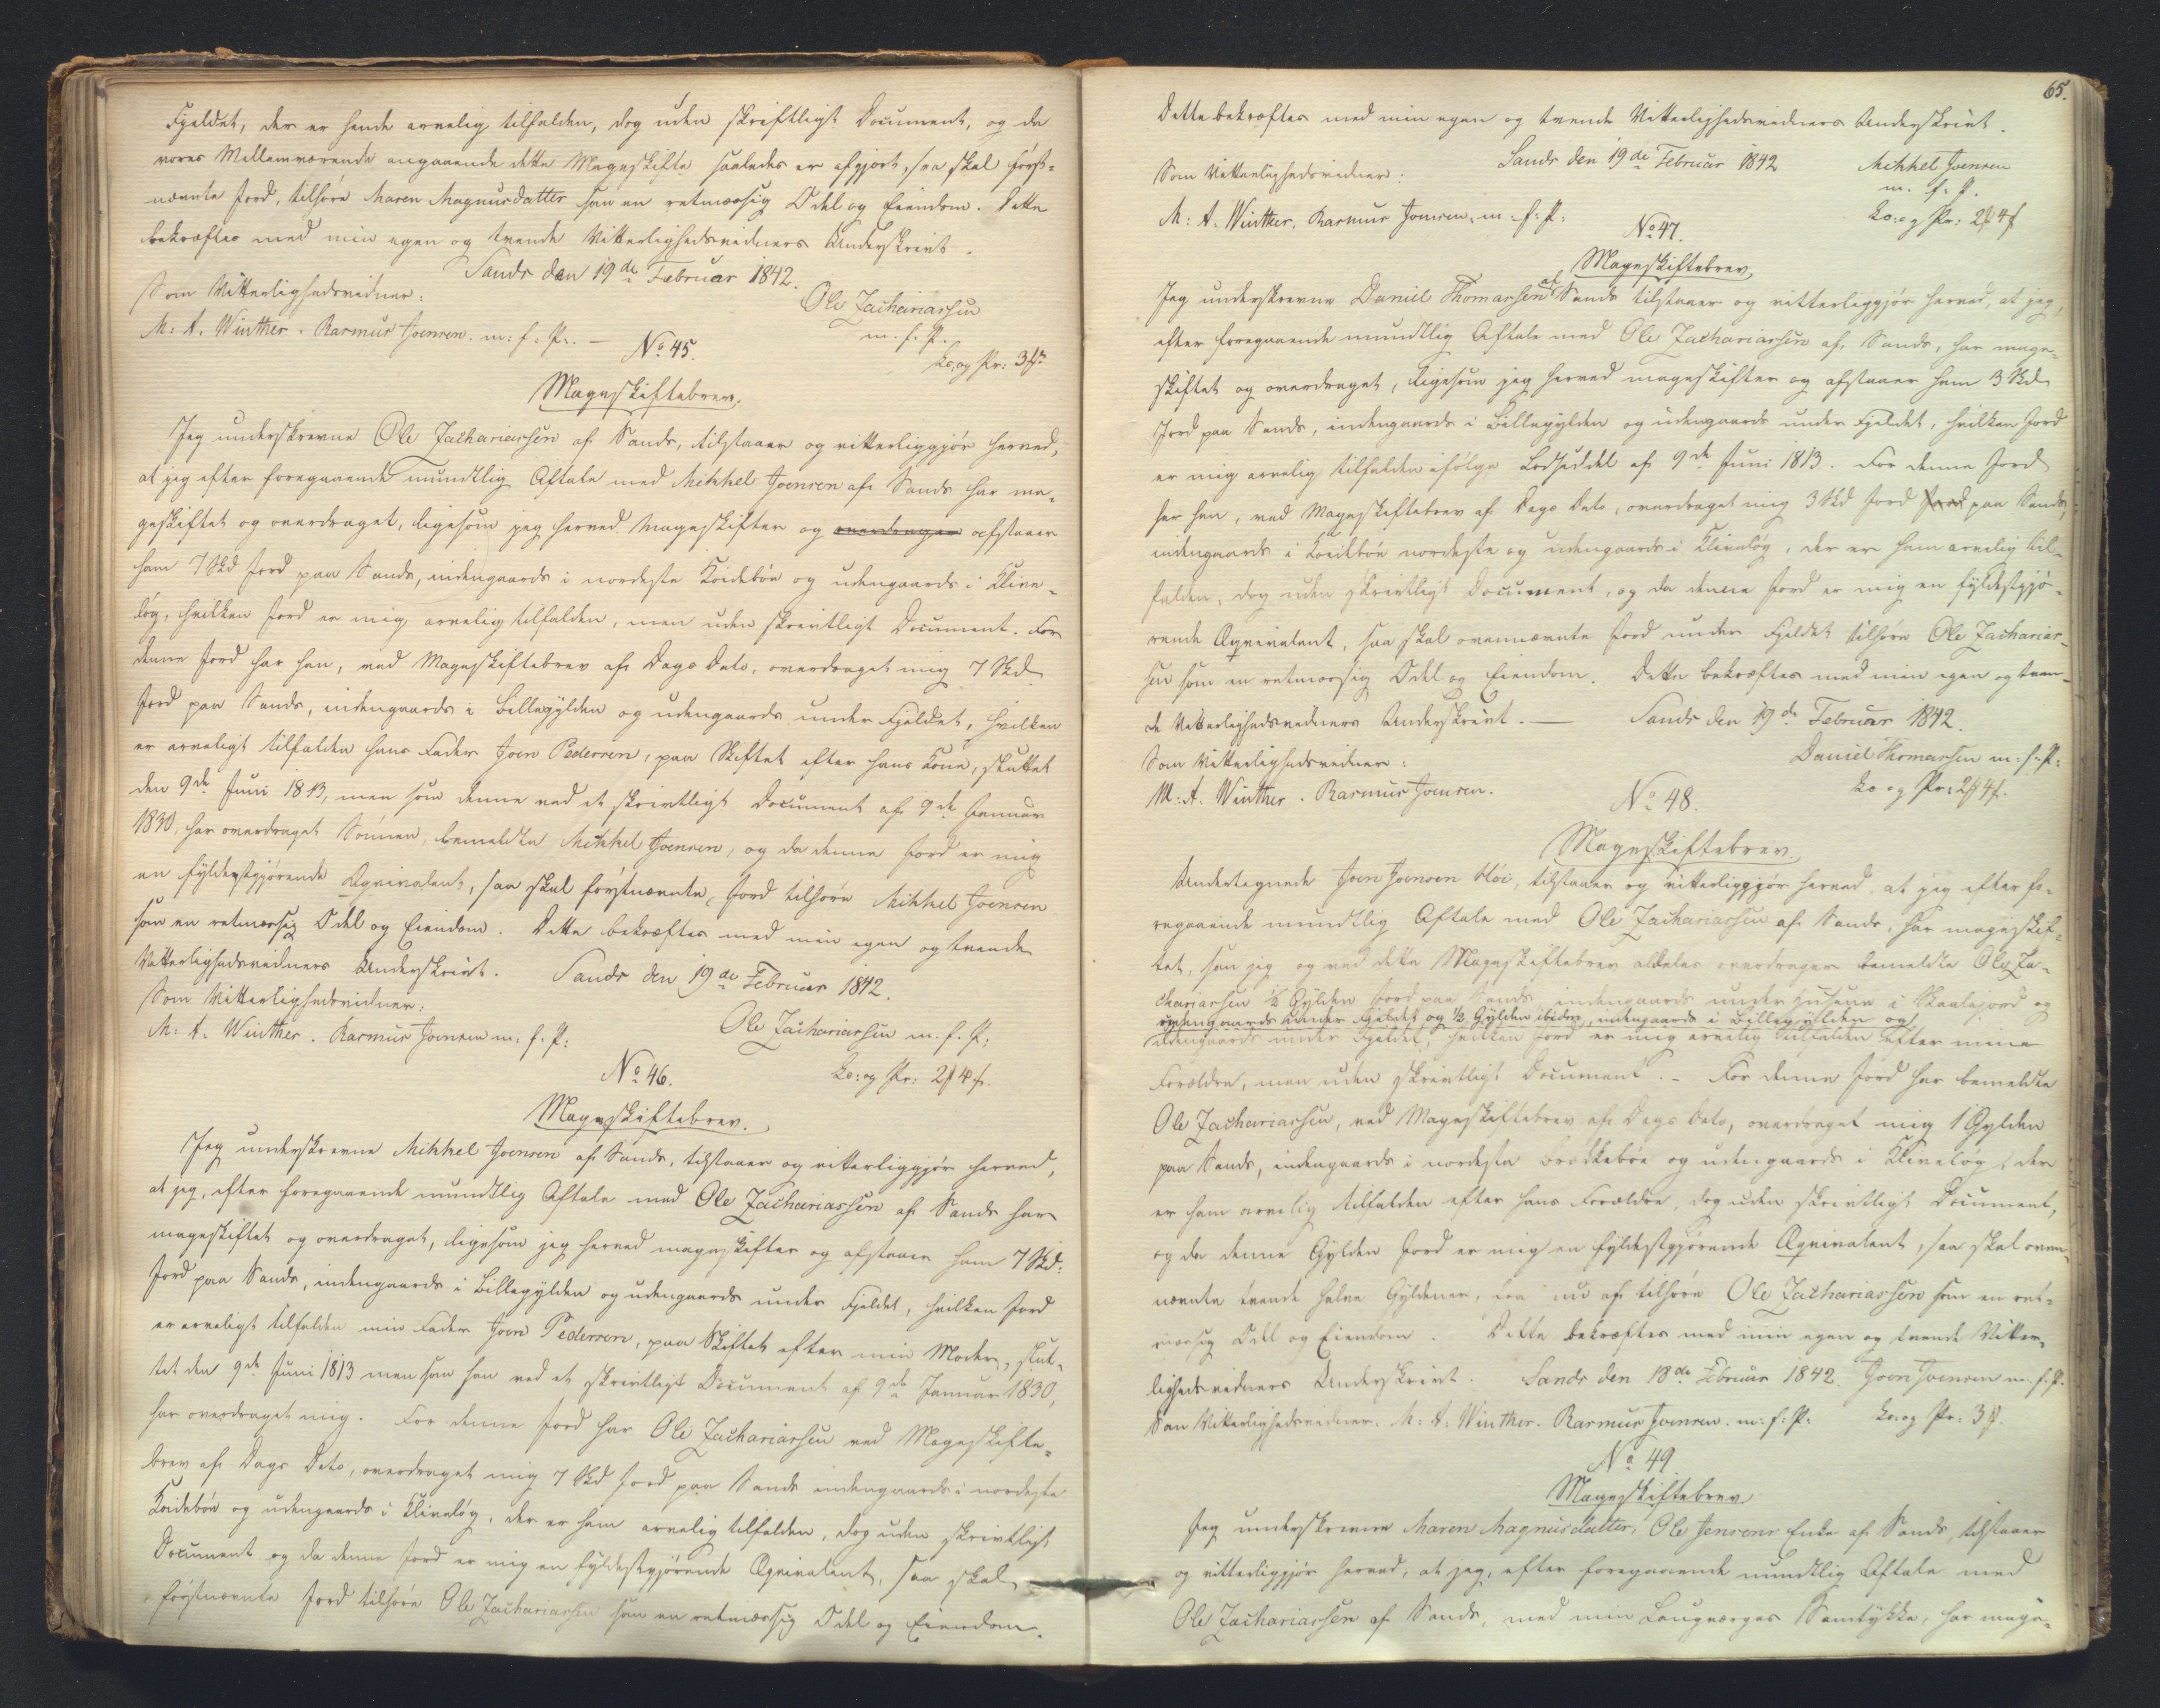 Fjeldet, der er hende arvelig tilfalden, dog uden skriftligt Document, og da
vores Mellemværende angaaende dette Mageskifte saaledes er afgjort, saa skal først-
nævnte Jord, tilhøre Maren Magnusdatter som en retmæssig Odel og Eiendom. Dette
bekræftes med min egen og tvende Vitterlighedsvidners Underskrivt.
Sands den 19de Februar 1842.
Som Vitterlighedsvidner:
Ole Zachariassen
m. f. P.
M: A. Winther. Rasmus Joensen. m: f: P:. —
No 45.
Co: og Pr: 3
Mageskiftebrev.
Jeg underskrevne Ole Zachariassen af Sands, tilstaaer og vitterliggjør herved,
at jeg efter foregaaende mundtlig Aftale med Mikkel Joensen af Sands har ma-
geskiftet og overdraget, ligesom jeg herved mageskifter og overdrager afstaaer
ham 7 Skd Jord paa Sands, indengaards i nordeste Koidebøe og udengaards i Klive-
løg, hvilken Jord er mig arvelig tilfalden, men uden skrivtligt Document. For
denne Jord har han, ved Mageskiftebrev af Dags Dato, overdraget mig 7 Skd
Jord paa Sands, indengaards i Billegylden og udengaards under Fjeldet, hvilken
er arveligt tilfalden hans Fader Joen Pedersen, paa Skiftet efter hans Kone, sluttet
den 9de Juni 1813, men som denne ved et skrivtligt Document af 9de Januar
1830, har overdraget Sønnen, bemeldte Mikkel Joensen, og da denne Jord er mig
en fyldestgjørende Æqvivalent, saa skal førstnævnte Jord tilhøre Mikkel Joensen
som en retmæssig Odel og Eiendom. Dette bekræftes med min egen og tvende
Vitterlighedsvidners Underskrivt. Sands den 19de Februar 1842.
Som Vitterlighedsvidner:
Ole Zachariassen m. f. P.
M: A. Winther. Rasmus Joensen m: f: P:
No 46.
Co: og Pr: 2 4
Mageskiftebrev.
Jeg underskrevne Mikkel Joensen af Sands, tilstaaer og vitterliggjør herved,
at jeg, efter foregaaende mundtlig Aftale med Ole Zachariassen af Sands har
mageskiftet og overdraget, ligesom jeg herved mageskifter og afstaaer ham 7 Skd:
Jord paa Sands, indengaards i Billegylden og udengaards under Fjeldet, hvilken Jord
er arveligt tilfalden min Fader Joen Pedersen, paa Skiftet efter min Moder, slut-
tet den 9de Juni 1813 men som han ved et skrivtligt Document af 9de Januar 1830,
har overdraget mig. For denne Jord har Ole Zachariassen ved Mageskifte-
brev af Dags Dato, overdraget mig 7 Skd Jord paa Sands indengaards i nordeste
Koidebøe og udengaards i Kliveløg, der er ham arvelig tilfalden, dog uden skrivtligt
Document og da denne Jord er mig en fyldestgjørende Æqvivalent, saa skal
førstnævnte Jord tilhøre Ole Zachariassen som en retmæssig Odel og Eiendom.
65.
Dette bekræftes med min egen og tvende Vitterlighedsvidners Underskrivt.
Sands den 19de Februar 1842
Mikkel Joensen
m. f. P.
Som Vitterlighedsvidner:
M: A. Winther. Rasmus Joensen. m: f: P:
Co: og Pr: 2 4
No 47.
Mageskiftebrev.
Jeg underskrevne Daniel Thomassen af Sands tilstaaer og vitterliggjør herved, at jeg,
efter foregaaende mundtlig Aftale med Ole Zachariassen af Sands, har mage-
skiftet og overdraget, ligesom jeg herved mageskifter og afstaaer ham 3 Skd
Jord paa Sands, indengaards i Billegylden og udengaards under Fjeldet, hvilken Jord
er mig arvelig tilfalden ifølge Lodseddel af 9de Juni 1813. For denne Jord
har han, ved Mageskiftebrev af Dags Dato, overdraget mig 3 Skd Jord Jord paa Sands,
indengaards i Koidebøe nordeste og udengaards i Kliveløg, der er ham arvelig til-
falden, dog uden skrivtligt Document, og da denne Jord er mig en fyldestgjø-
rende Æqvivalent, saa skal ovennævnte Jord under Fjeldet tilhøre Ole Zacharias-
sen som en retmæssig Odel og Eiendom. Dette bekræftes med min egen og tven-
de Vitterlighedsvidners Underskrivt. — Sands den 19de Februar 1842.
Som Vitterlighedsvidner:
Daniel Thomassen m: f: P:
M: A. Winther. Rasmus Joensen.
Co og Pr: 2 4
No 48.
Mageskiftebrev.
Undertegnede Joen Joensen Høi, tilstaaer og vitterliggjør herved, at jeg efter fo-
regaaende mundtlig Aftale med Ole Zachariassen af Sands, har mageskif-
tet, som jeg og ved dette Mageskiftebrev aldeles overdrager bemeldte Ole Za-
chariassen ½ Gylden Jord paa Sands, indengaards under Husene i Skaalejord og
udengaards under Fjeldet og ½ Gylden ibidem, indengaards i Billegylden og
udengaards under Fjeldet, hvilken Jord er mig arvelig tilfalden efter mine
Forældre, men uden skrivtligt Document. - For denne Jord har bemeldte
Ole Zachariassen, ved Mageskiftebrev af Dags Dato, overdraget mig 1 Gylden
paa Sands, indengaards i nordeste Brøkkebøe og udengaards i Kliveløg, der
er ham arvelig tilfalden efter hans Forældre, dog uden skrivtligt Document,
og da denne Gylden Jord er mig en fyldestgjørende Æqvivalent, saa skal oven-
nævnte tvende halve Gyldener, fra nu af tilhøre Ole Zachariassen som en ret-
mæssig Odel og Eiendom. Dette bekræftes med min egen og tvende Vitter-
lighedsvidners Underskrivt. Sands den 18de Februar 1842. Joen Joensen m. f. P.
Som Vitterlighedsvidner. M: A: Winther. Rasmus Joensen. m: f: P: Co: og Pr: 3
No 49
Mageskiftebrev
Jeg underskrevne Maren Magnusdatter, Ole Jensens Enke af Sands, tilstaaer
og vitterliggjør herved, at jeg, efter foregaaende mundtlig Aftale med
Ole Zachariassen af Sands, med min Laugværges Samtykke, har mage-